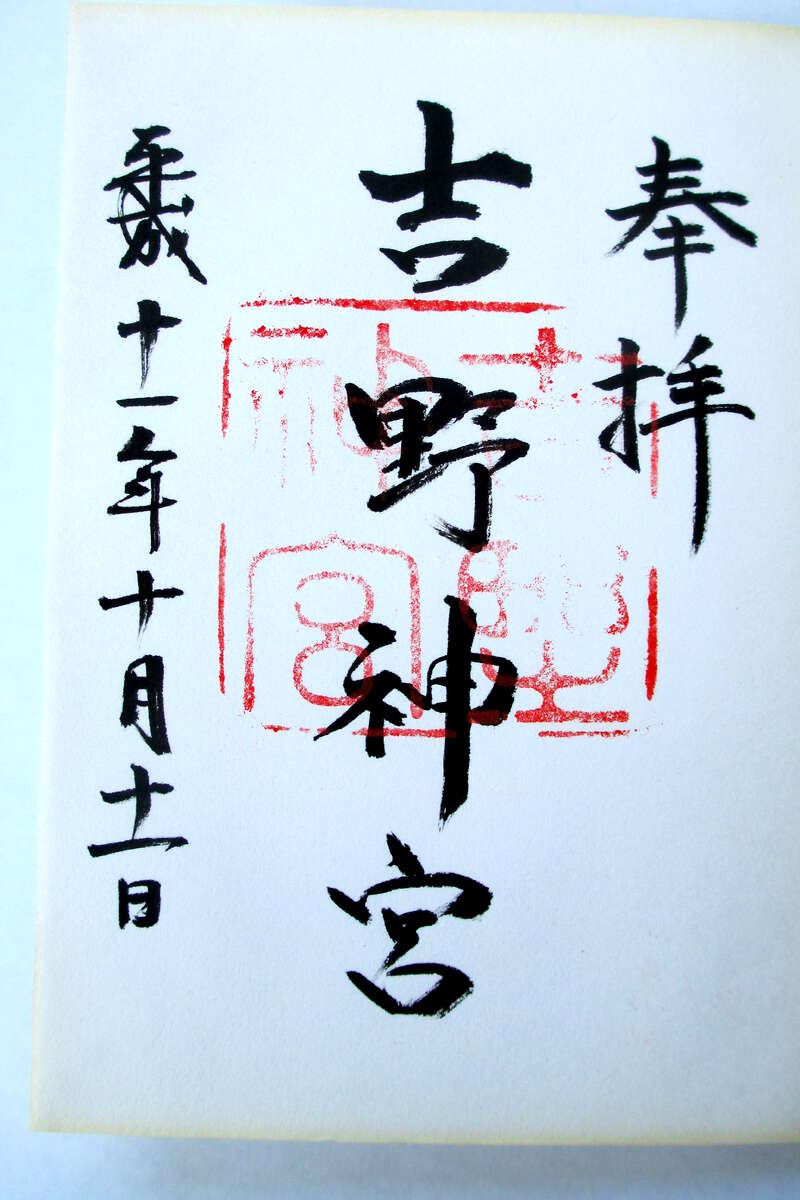 奉拝
吉野神宮
平成十一年十月十一日
吉野
神宮